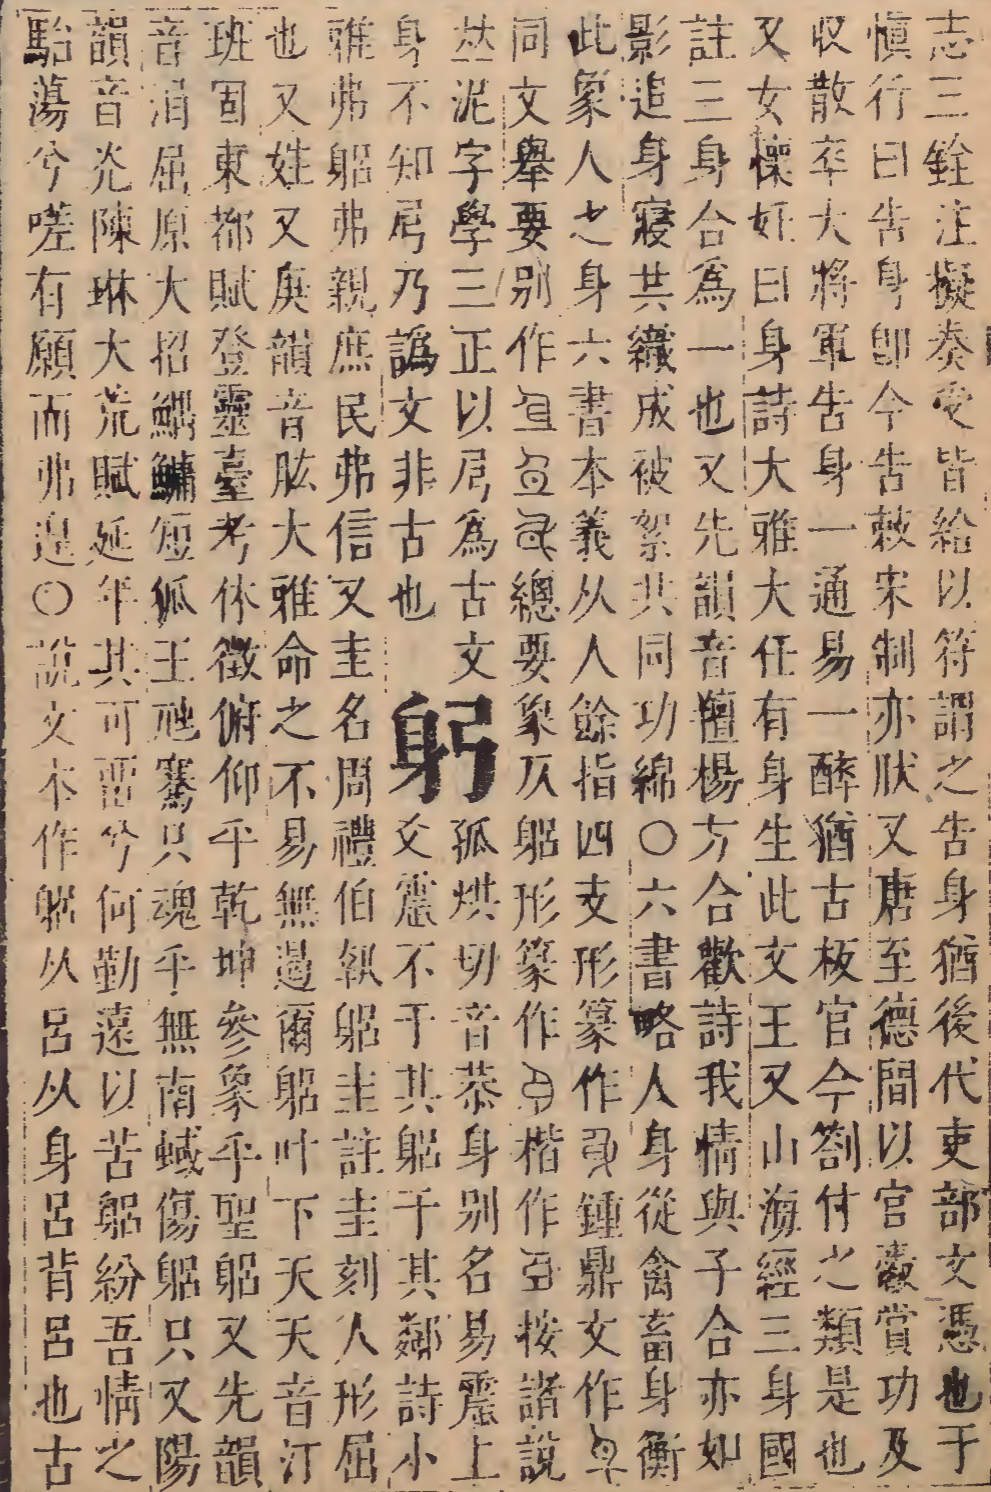 志三銓注擬奏受皆給以符謂之告身猶後代吏部文憑也于
慎行曰告身卽今告敕宋制亦肰又唐至德間以官爵賞功及
収散卒大將軍告身一通易一醉猶古板官今劄付之類是也
又女懆奸曰身詩大雅大任有身生此文王又山海經三身國
註三身合爲一也又先韻音羶楊方合歡詩我情與子合亦如
影追身寢共織成被絮共同功綿○六書略人身從禽畜身衡
此象人之身六書本義从人餘指四支形篆作鍾鼎文作
同文舉要别作總要象仄躬形篆作楷作按諸說
泥字學三正以㐆爲古文
身不知㐆乃譌文非古也
躬孤烘切音恭身别名易震上
爻震不于其躬于其鄰詩小
雅弗躬弗親庶民弗信又圭名周禮伯執躬圭註圭刻人形屈
也又姓又庚韻音肱大雅命之不易無遏爾躬叶下天天音汀
班固東都賦登靈臺考休徵俯仰乎乾坤參象乎聖躬又先韻
音涓屈原大招鰅鱅短狐王虺騫只魂乎無南蜮傷躬只又陽
韻音光陳琳大荒賦延年其可畱兮何勤遠以苦躬紛吾情之
駘蕩兮嗟有願而弗遑○說文本作躳从呂从身呂背呂也古